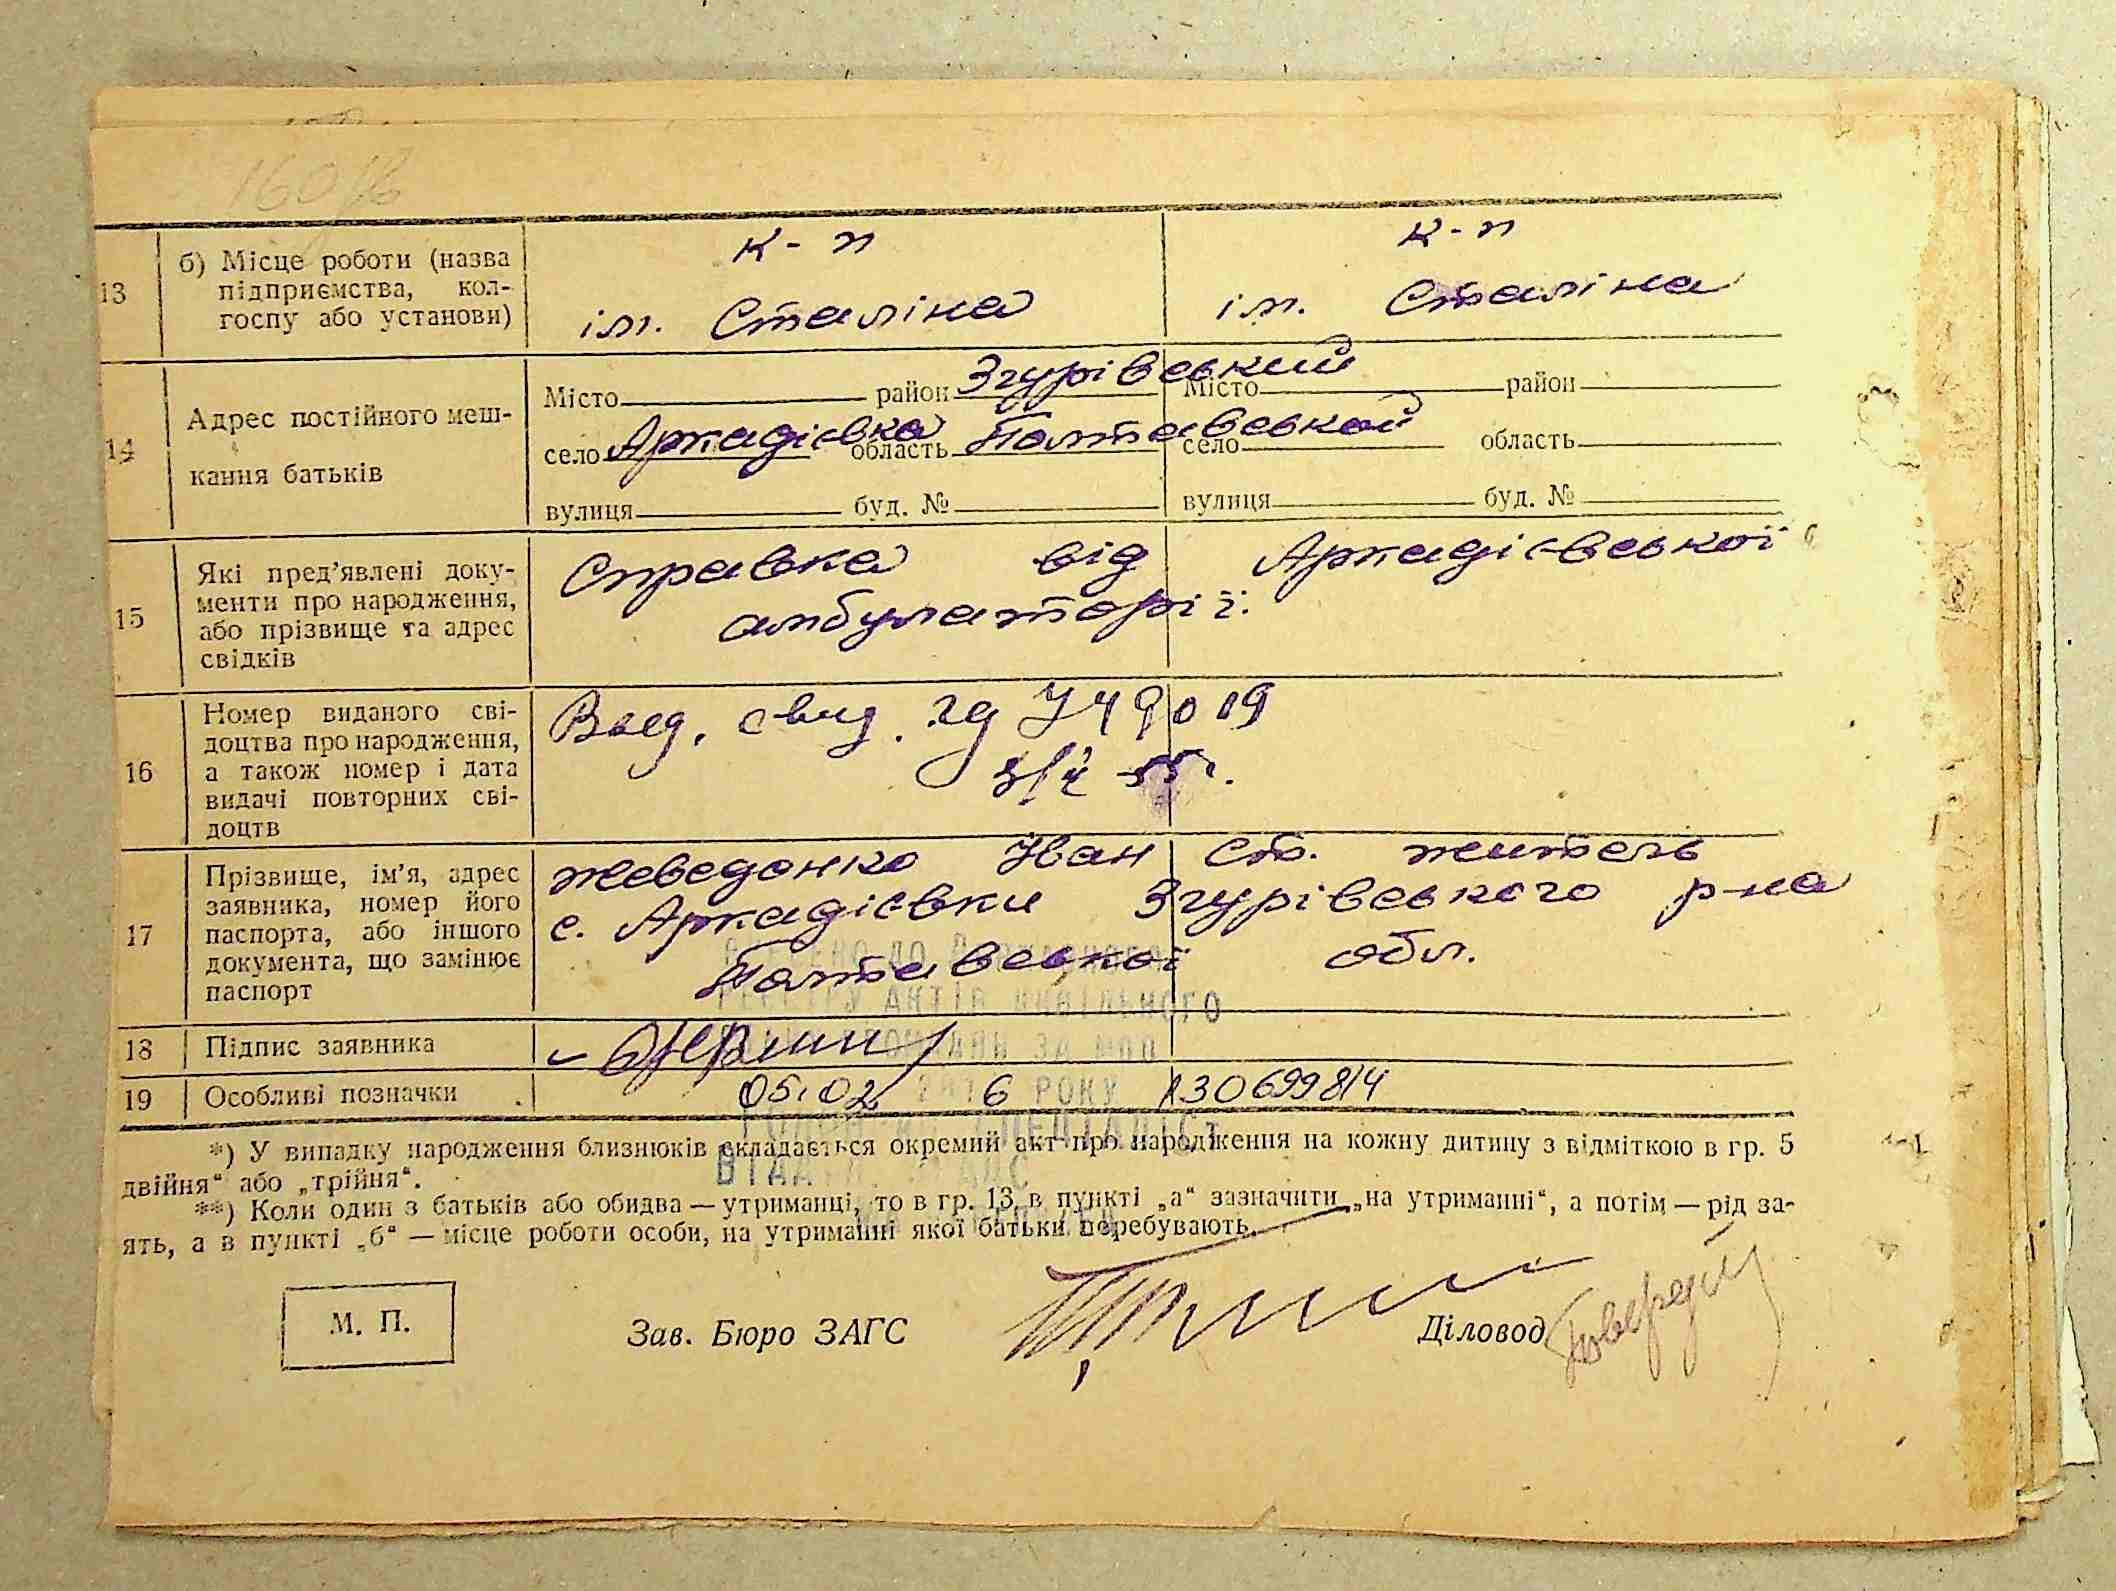 160зв
13 б) Місце роботи (назва підприємства, колгоспу або установи)
к-п к-п
ім. Сталіна ім. Сталіна
14 Адрес постійного мешкання батьків
Місто район Згурівський Місто район
село Аркадієвка область Полтавськой село область
вулиця буд. № вулиця буд. №
15 Які пред’явлені доку-
менти про народження,
або прізвище та адрес
свідків
Справка від Аркадієвської
амбулаторії.
16 Номер виданого сві-
доцтва про народження,
а також номер і дата
видачі повторних сві-
доцтв
свид. 749019
55г.
17 Прізвище, ім’я, адрес
заявника, номер його
паспорта, або іншого
документа, що замінює
паспорт
Жеведонко Іван Ст. житель
с. Аркадієвки Згурівського р-на
Полтавської обл.
РЕЄСТРУ АКТІВ ЦИВІЛЬНОГО
18 Підпис заявника
19 Особливі позначки
05.02 6 РОКУ 130699814
*) У випадку народження близнюків складається окремий акт про народження на кожну дитину з відміткою в гр. 5
двійня“ або „трійня“.
**) Коли один з батьків або обидва — утриманці, то в гр. 13 в пункті „а“ зазначити „на утриманні“, а потім — рід за-
ять, а в пункті „б“ — місце роботи особи, на утриманні якої батьки перебувають.
М. П.
Зав. Бюро ЗАГС Діловод